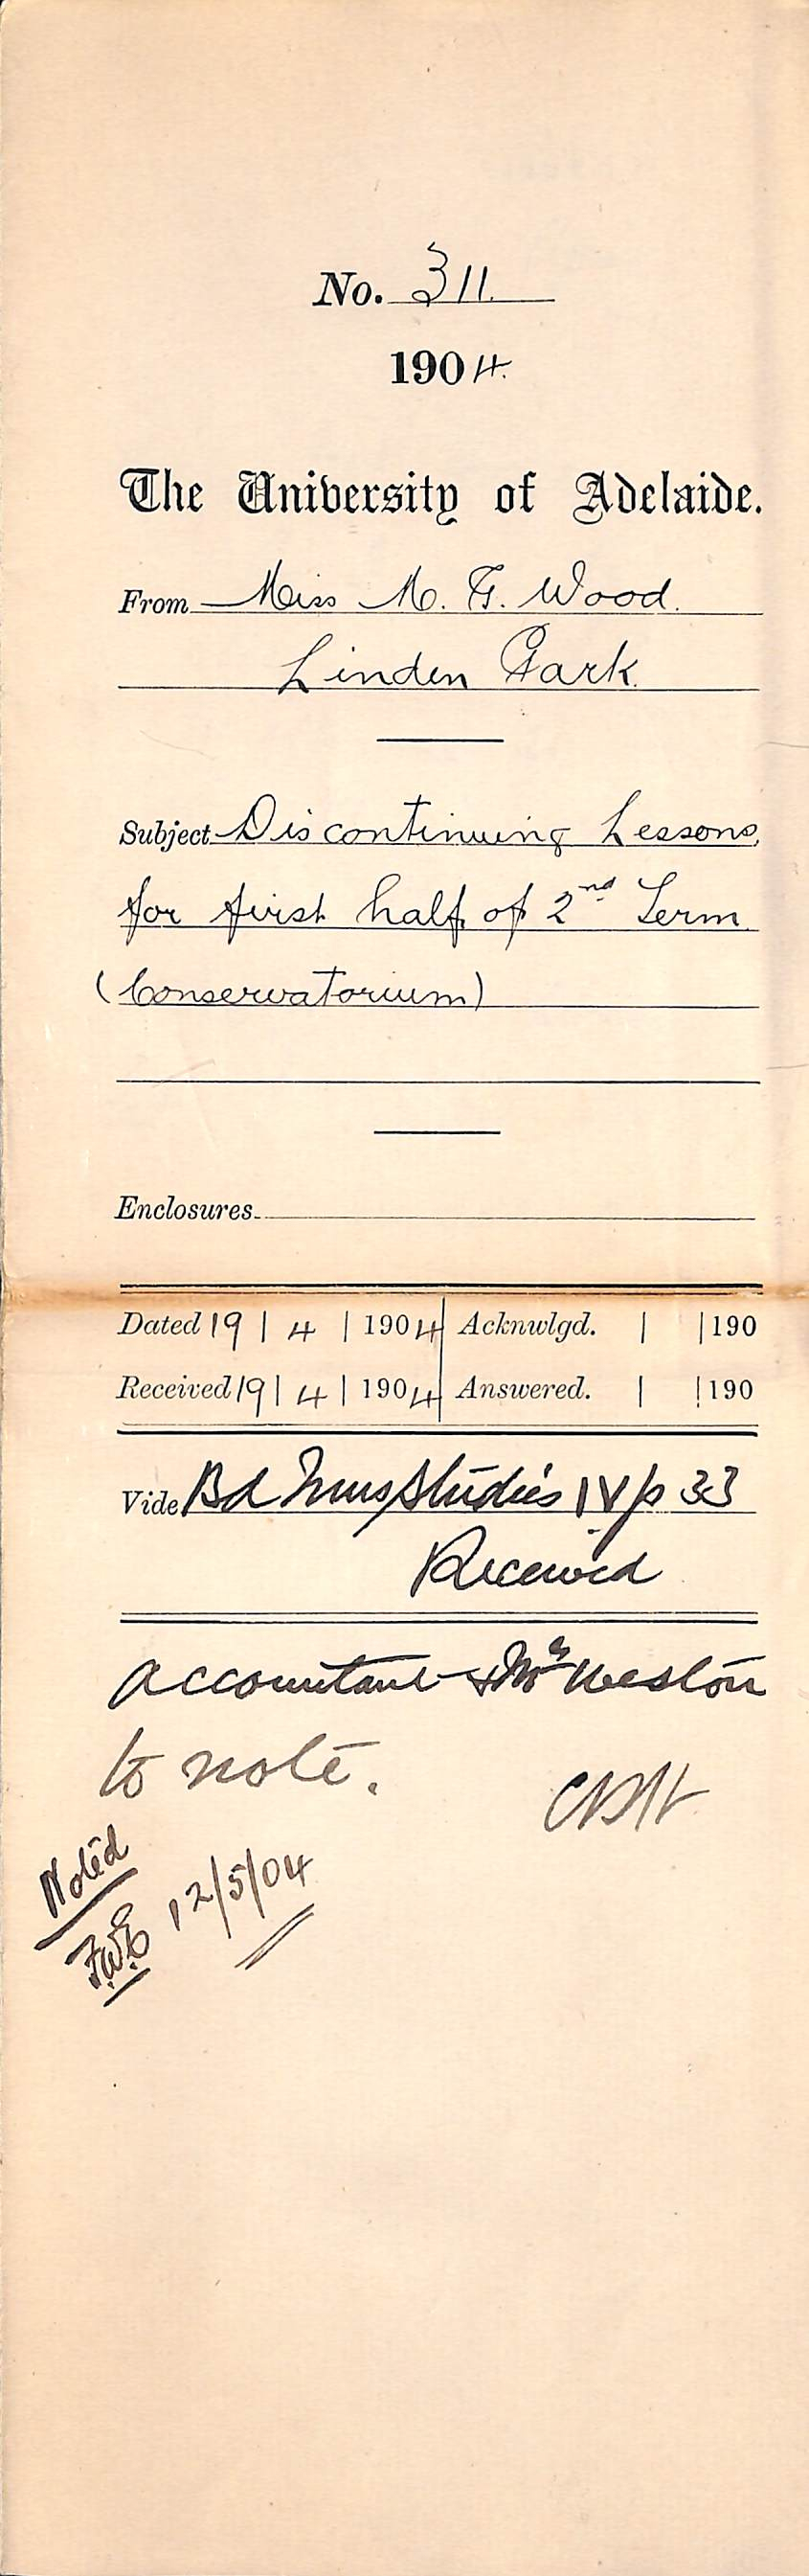 No. 311.
1904.
The University of Adelaide.
From Miss M. G. Wood.
Linden Park.
Subject Discontinuing Lessons,
for first half of 2nd Term
(Conservatorium)
Enclosures
Dated 19 | 4 | 1904 Acknwlgd. | | 190
Received 19 | 4 | 1904 Answered. | | 190
Vide Bd Mus Studies IV p 33
Received
Accountant & Mr Weston
to note.
Noted
12/5/04